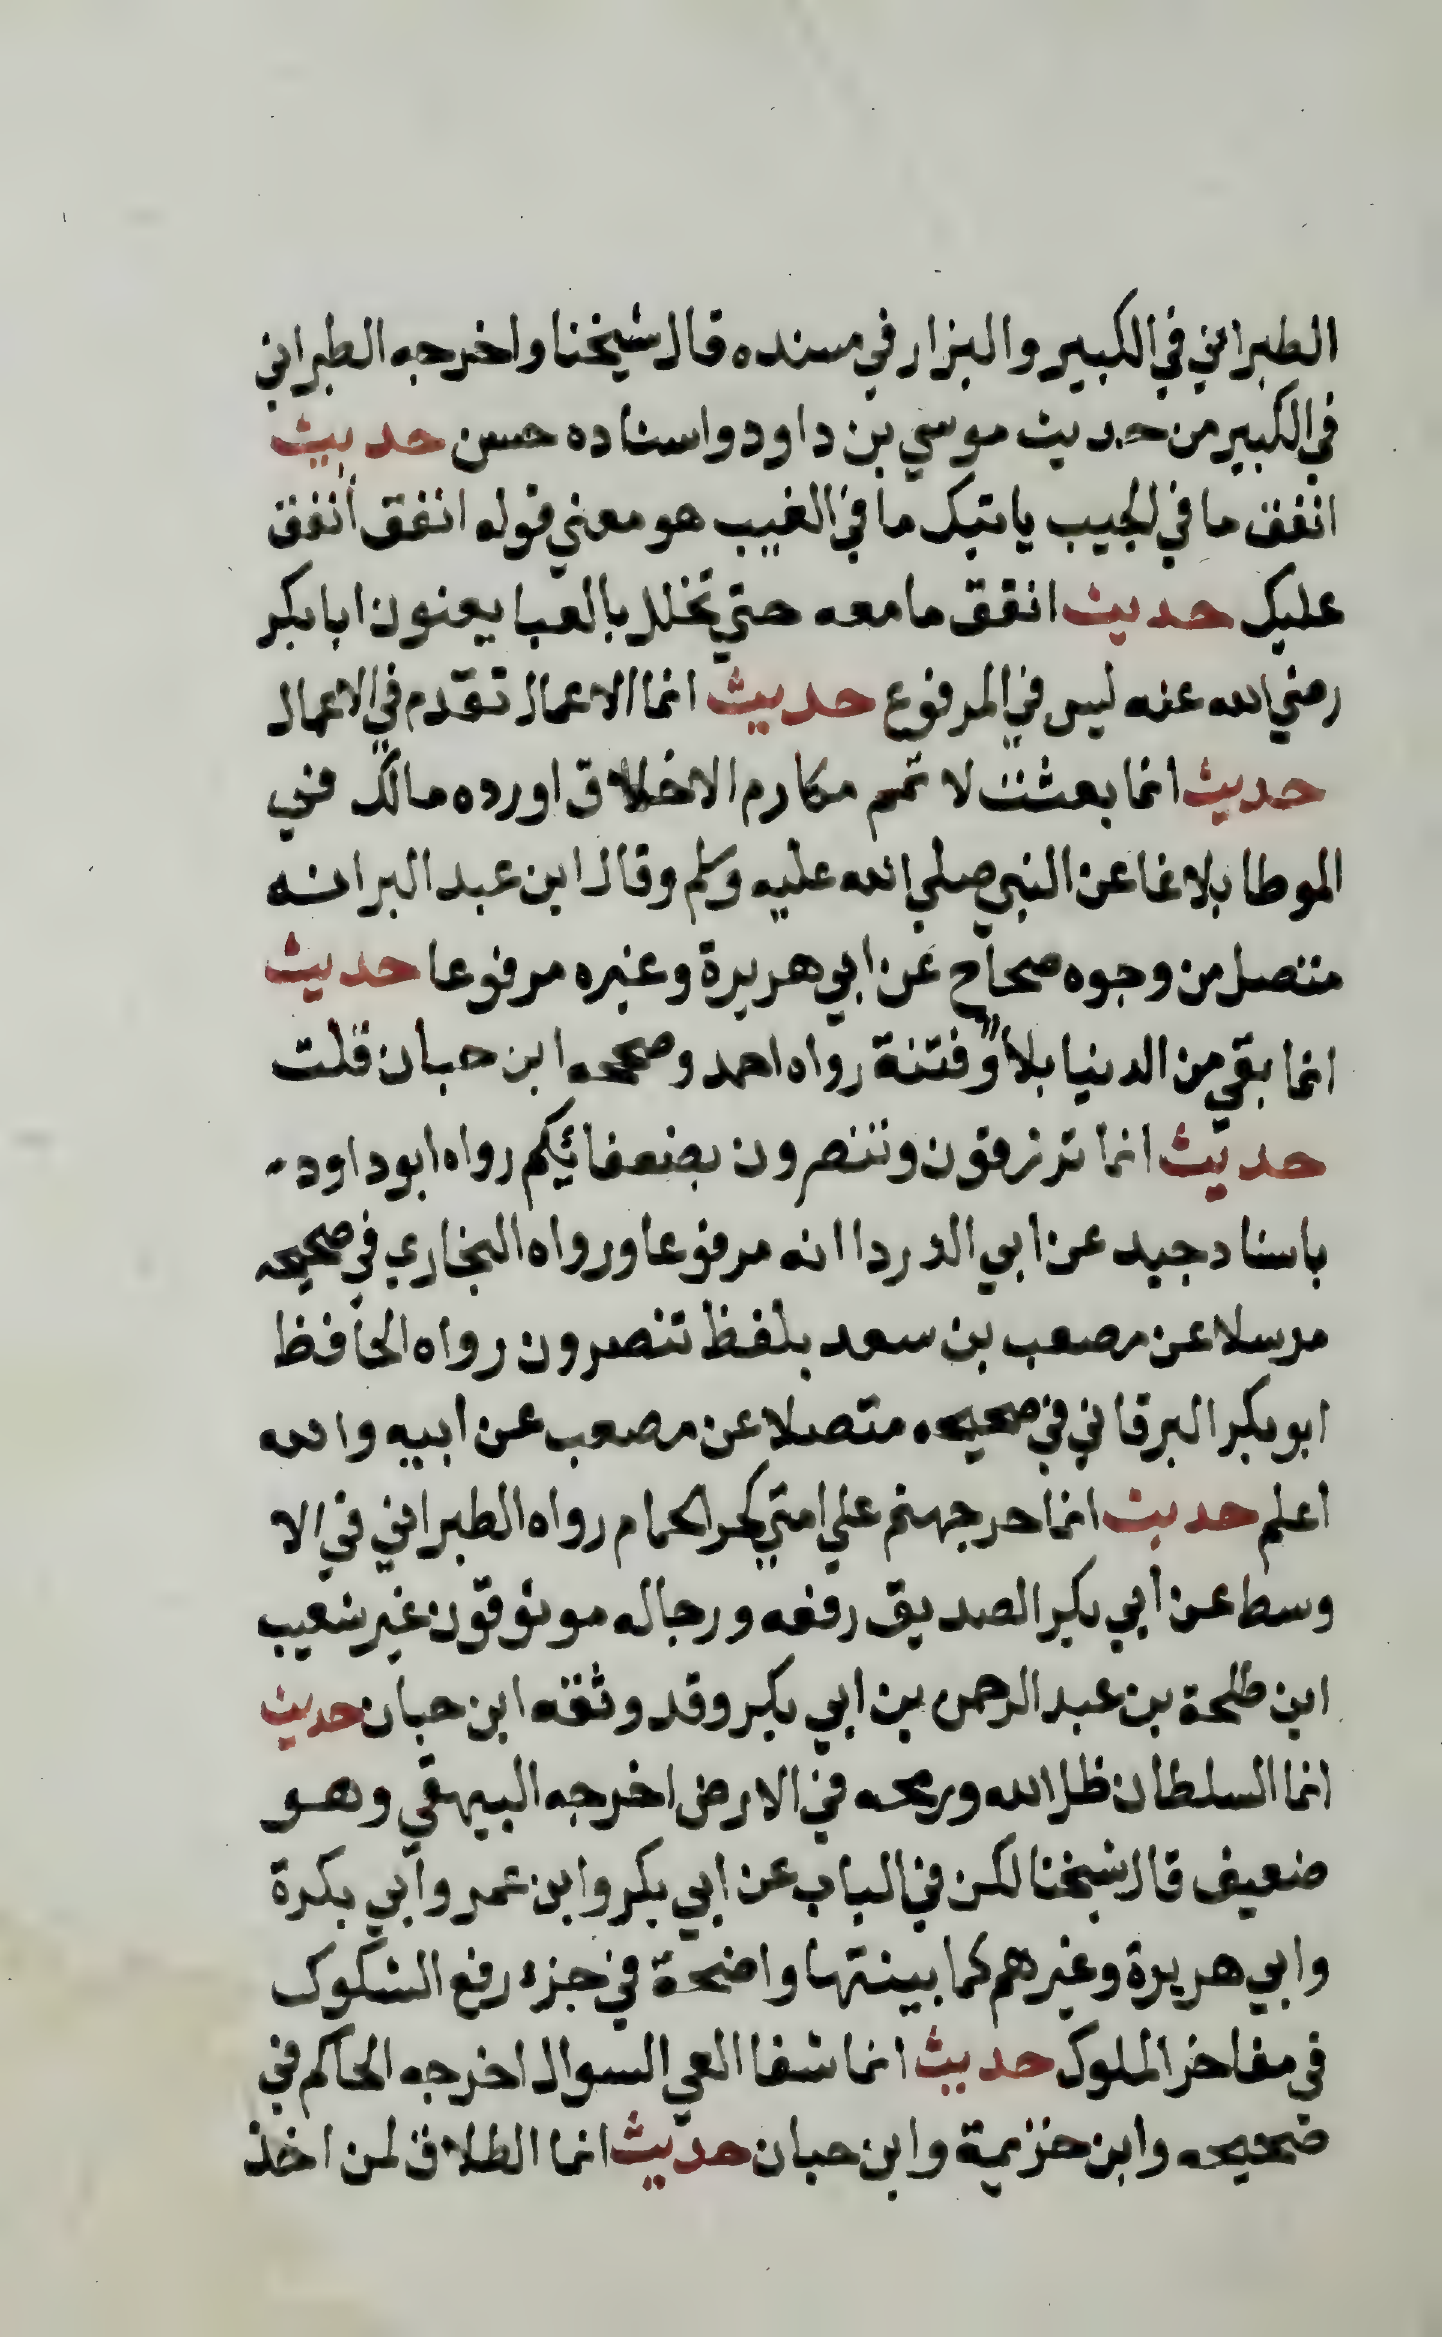 الطبراني في الكبير والبزار في مسنده قال شيخنا واخرجه الطبراني
في الكبير من حديث موسي بن داود واسناده حسن حديث
انفق ما في الجيب ياتيك ما في الغيب هو معني قوله انفق انفق
عليك حديث انفق ما معه حتي تخلل بالعبا يعنون ابا بكر
رضي الله عنه ليس في المرفوع حديث انما الاعمال تقدم في الاعمال
حديث انما بعثت لا تمم مكارم الاخلاق اورده مالك في
الموطا بلاغا عن النبي صلي الله عليه وسلم وقال ابن عبد البر انه
متصل من وجوه صحاح عن ابي هريرة وغيره مرفوعا حديث
انما بقي من الدنيا بلاً وفتنة رواه احمد وصححه ابن حبان قلت
حديث انما ترزقون وتنصرون بضعفائيكم رواه ابو داود
باسناد جيد عن ابي الدردا انه مرفوعا ورواه البخاري في صحيحه
مرسلا عن مصعب بن سعد بلفظ تنصرون رواه الحافظ
ابو بكر البرقاني في صحيحه متصلا عن مصعب عن ابيه والله
اعلم حديث انما حر جهنم علي امتي كحر الحمام رواه الطبراني في الا
وسط عن ابي بكر الصديق رفعه ورجاله موثوقون غير شعيب
ابن طلحة بن عبد الرحمن بن ابي بكر وقد وثقه ابن حبان حديث
انما السلطان ظل الله ورمحه في الارض اخرجه البيهقي وهو
ضعيف قال شيخنا لكن في الباب عن ابي بكر وابن عمر وابي بكرة
وابي هريرة وغيرهم كما بينتها واضحة في جزء رفع الشكوك
في مفاخر الملوك حديث انما شفا العي السوال اخرجه الحاكم في
صحيحه وابن خزيمة وابن حبان حديث انما الطلاق لمن اخذ